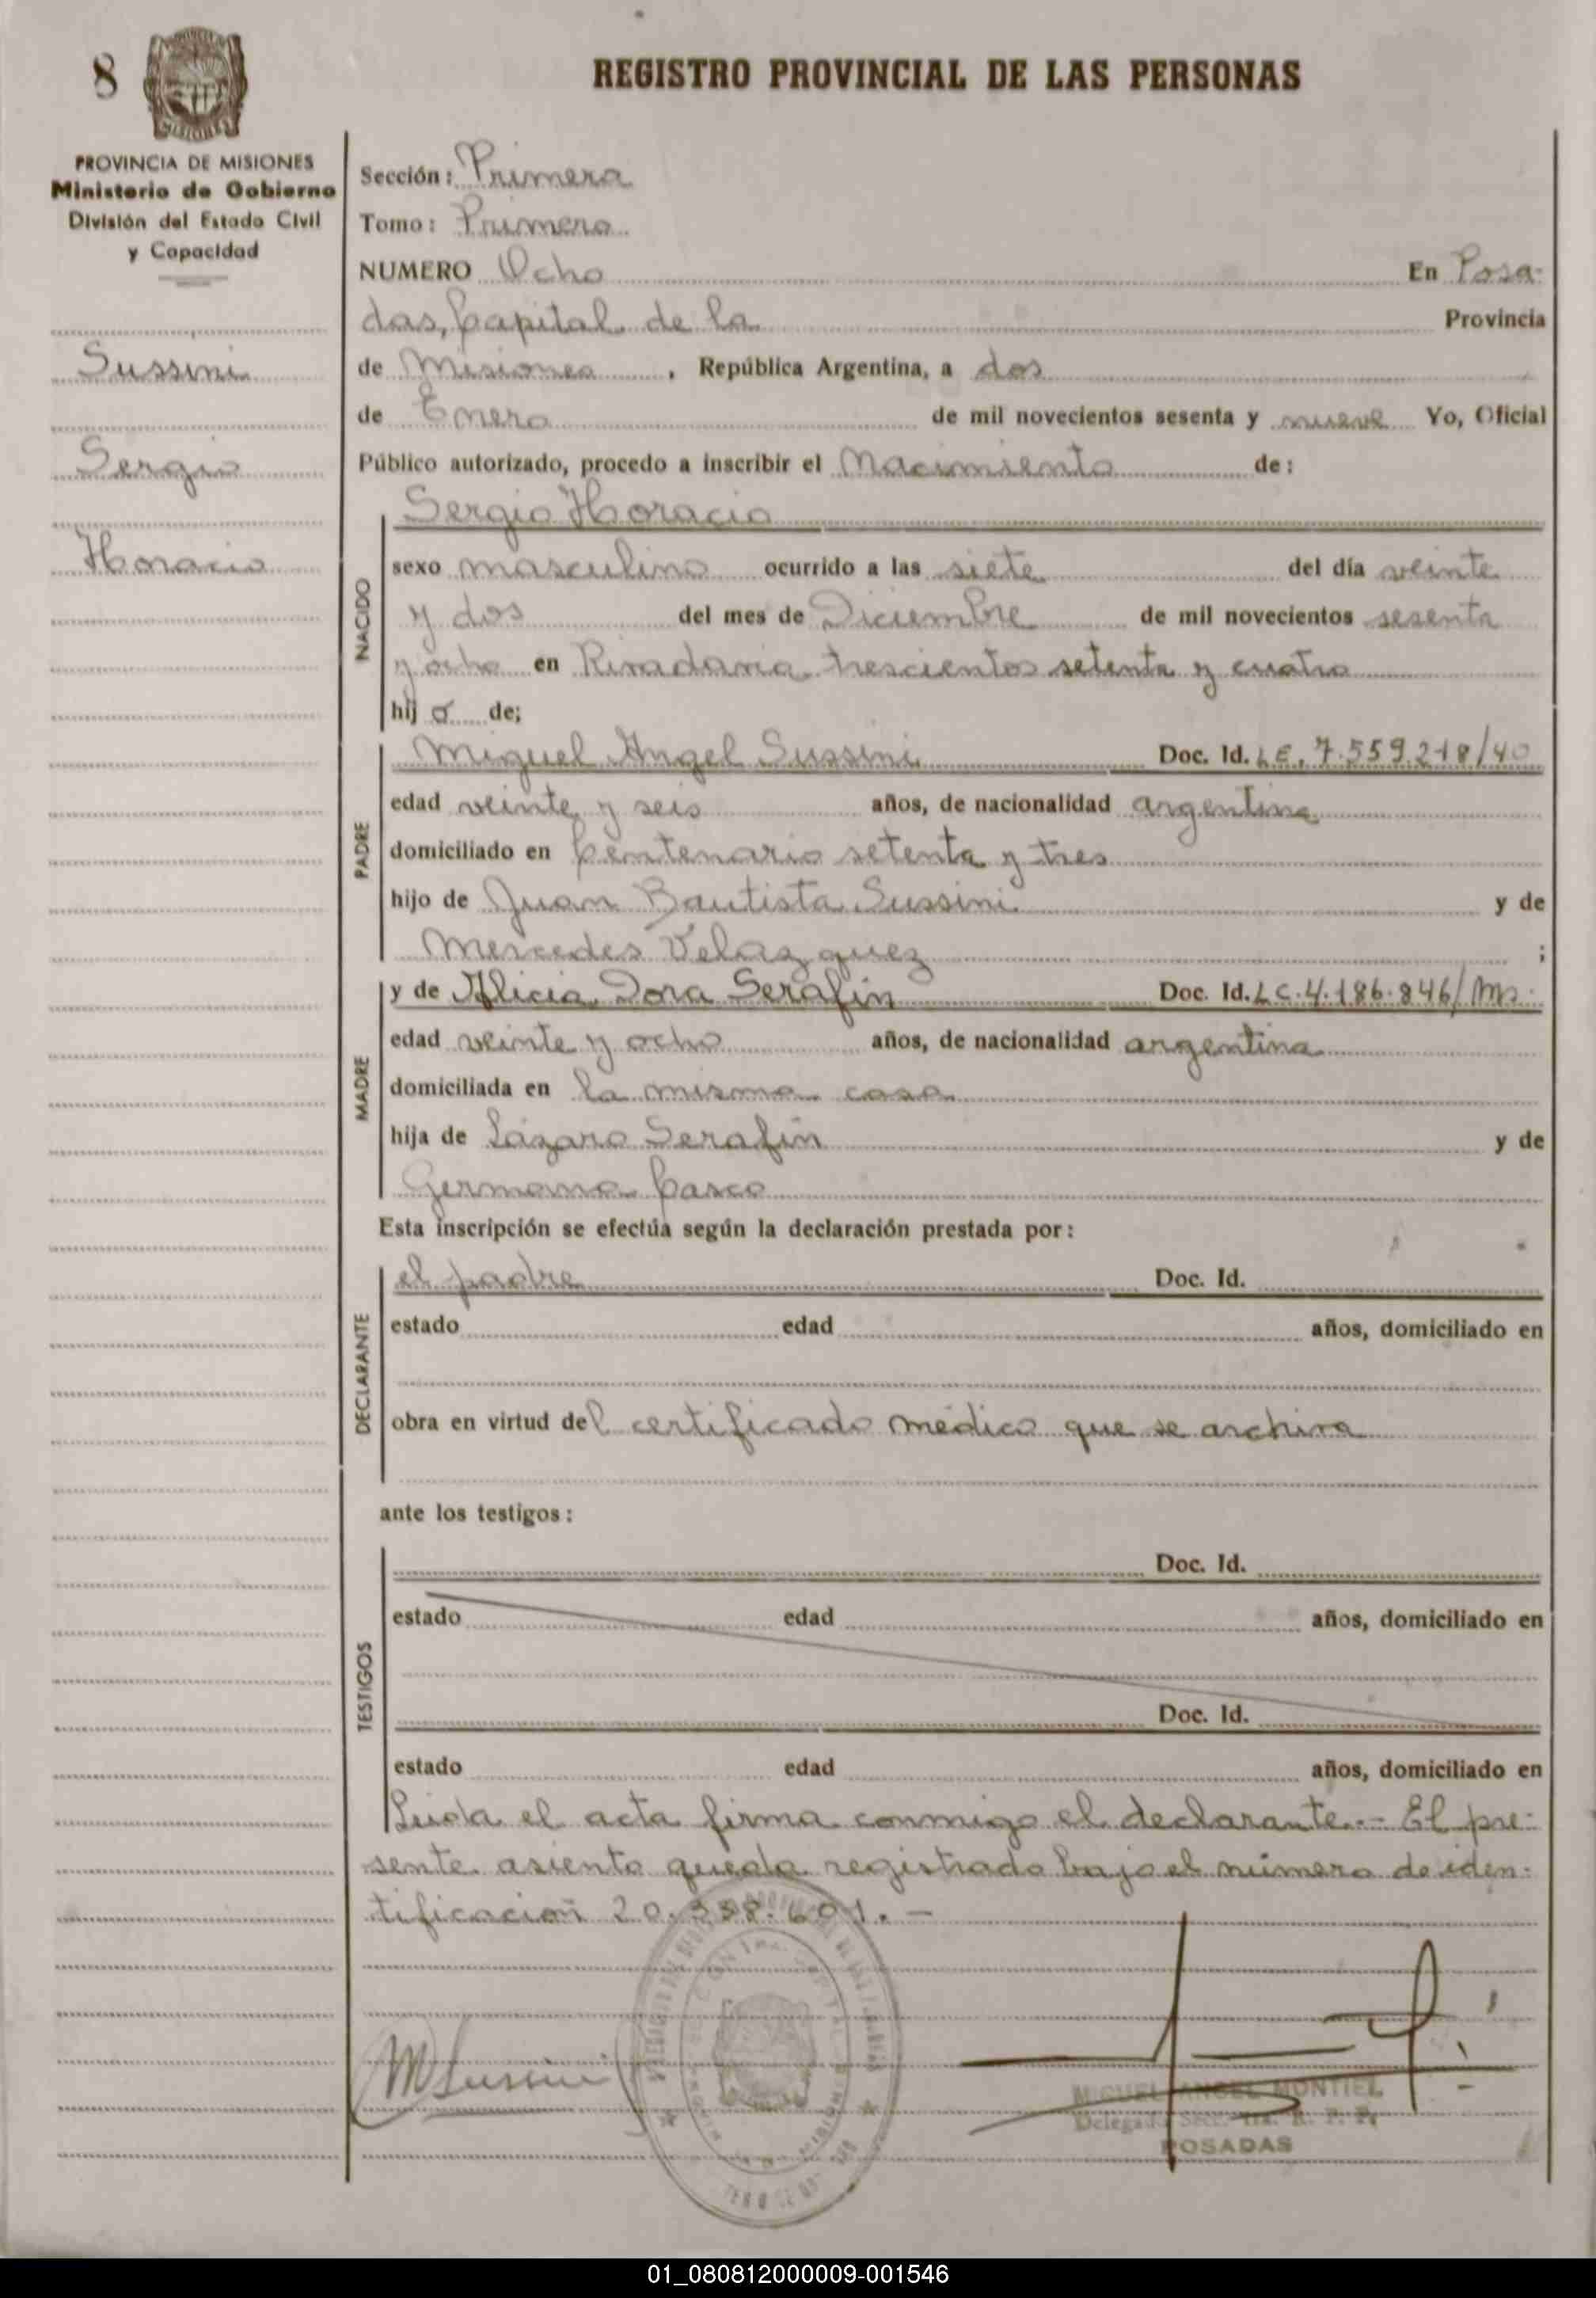 8
REGISTRO PROVINCIAL DE LAS PERSONAS
PROVINCIA DE MISIONES
Ministerio de Gobierno
División del Estado Civil
y Capacidad
Sussini
Sergio
Horacio
Sección: Primera
Tomo: Primero
NUMERO Ocho En Posa-
das, Capital de la Provincia
de Misiones, República Argentina, a dos
de Enero de mil novecientos sesenta y nueve Yo, Oficial
Público autorizado, procedo a inscribir el Nacimiento de:
NACIDO
Sergio Horacio
sexo masculino ocurrido a las siete del día veinte
y dos del mes de Diciembre de mil novecientos sesenta
y ocho en Rivadavia trescientos setenta y cuatro
hij o de;
PADRE
Miguel Angel Sussini Doc. Id. L.E. 7.559.218/40
edad veinte y seis años, de nacionalidad argentina
domiciliado en Centenario setenta y tres
hijo de Juan Bautista Sussini y de
Mercedes Velazquez ;
MADRE
y de Alicia Dora Serafín Doc. Id. L.C. 4.186.846/Ms.
edad veinte y ocho años, de nacionalidad argentina
domiciliada en la misma casa
hija de Lázaro Serafín y de
Germana Casco
Esta inscripción se efectúa según la declaración prestada por:
DECLARANTE
el padre Doc. Id.
estado edad años, domiciliado en
obra en virtud del certificado médico que se archiva
ante los testigos:
TESTIGOS
Doc. Id.
estado edad años, domiciliado en
Doc. Id.
estado edad años, domiciliado en
Leída el acta firma conmigo el declarante.- El pre-
sente asiento queda registrado bajo el número de iden-
tificación 20.338.601.-
M Sussini
MIGUEL ANGEL MONTIEL
Delegado Secc. 1ra. R. P. P.
POSADAS
01_080812000009-001546